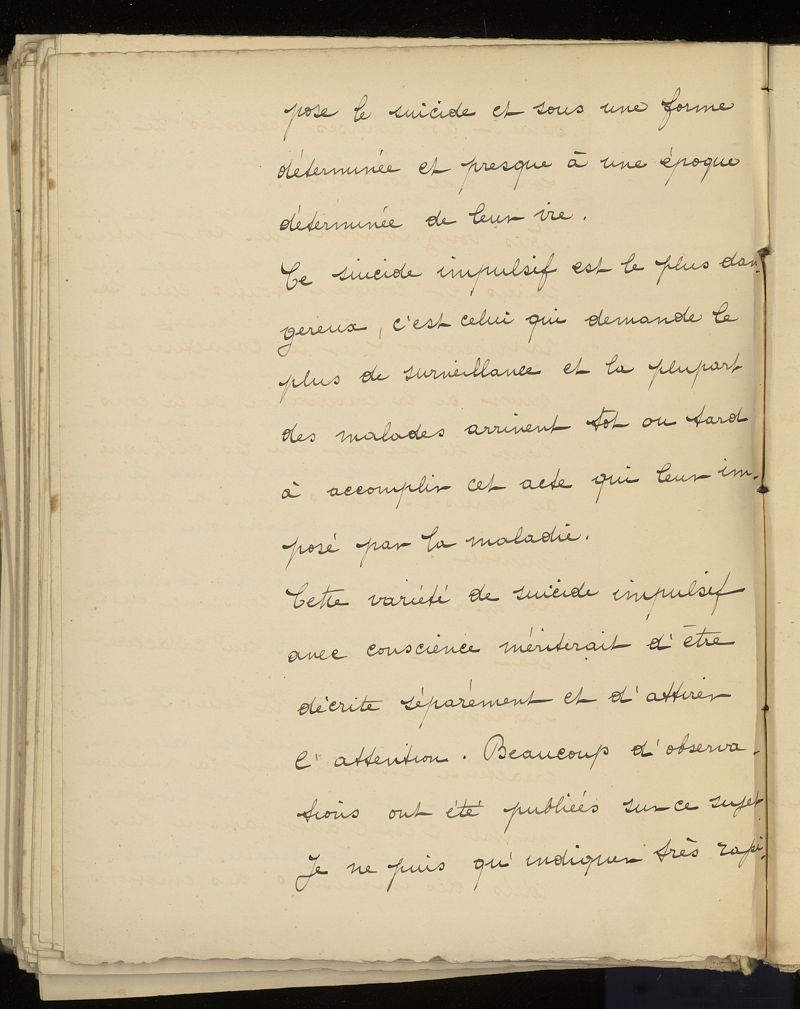 pose le suicide et sous une forme
déterminée et presque à une époque
déterminée de leur vie.
Ce suicide impulsif est le plus dan-
gereux, c'est celui qui demande le
plus de surveillance et la plupart
des malades arrivent tot ou tard
à accomplir cet acte qui leur im-
posé par la maladie.
Cette variété de suicide impulsif
avec conscience mériterait d'être
décrite séparément et d'attirer
l'attention. Beaucoup d'observa-
tions ont été publiées sur ce sujet
Je ne puis qu'indiquer très rapi-